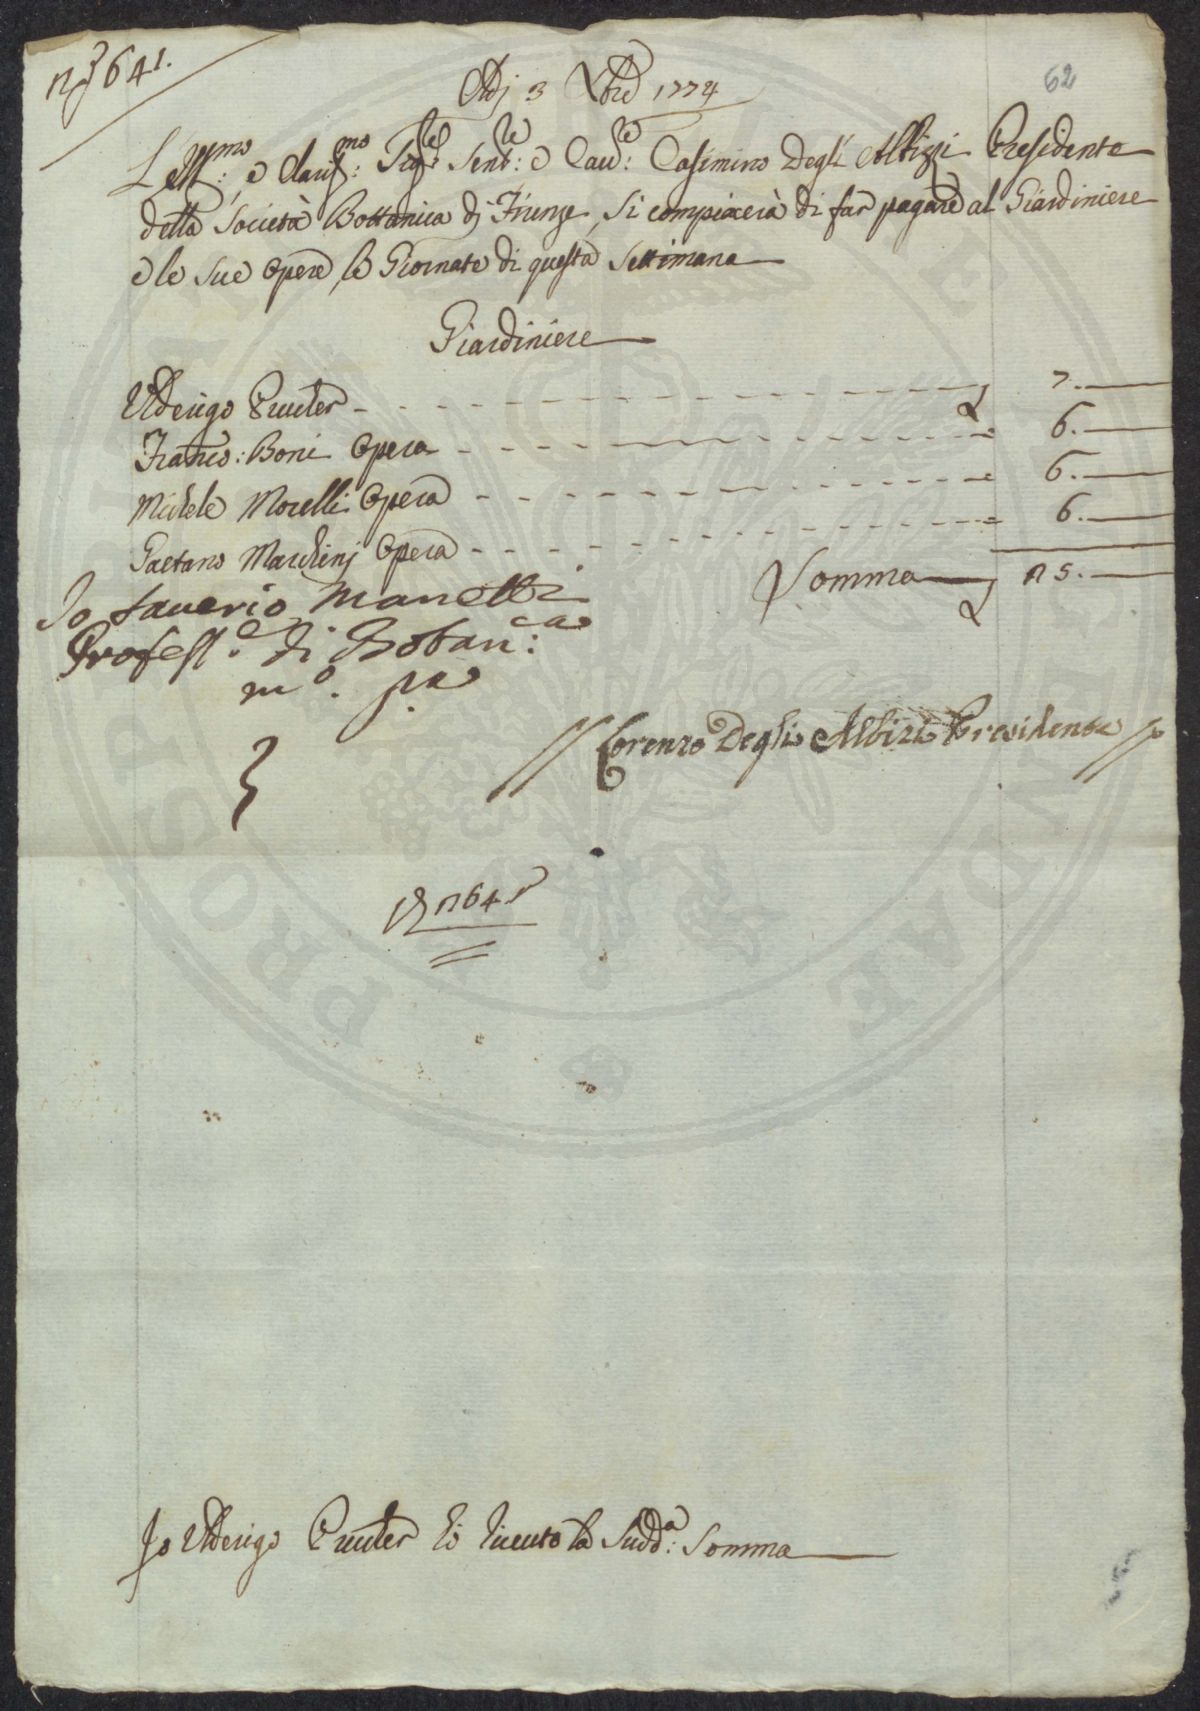 n.° 641.
62
Adj 3 Xbre 1774
L'Ill:mo, e Clariss:mo Sig:re Sent:re e Cav:re Casimirro Degli Albizzi Presidente
della Società Bottanica dj Firenze, si compiacerà di far pagare al Giardiniere
e le sue Opere le Giornate di questa Settimana
Giardiniere
Ulderigo Prucher 7.
Franco: Boni Opera 6.
Michele Morelli Opera 6.
Gaetano Marchinj Opera 6.
Somma 25.
Io Saverio Manetti
Profess.e di Botan:ca
m.o p.a
Lorenzo Degli Albizi Presidente
n 641
Io Ulderigo Prucher ò riceuto la Sudd:a Somma